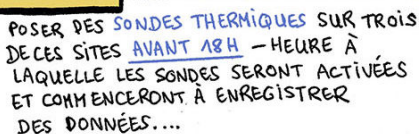 POSER DES SONDES THERMIQUES SUR TROIS
DE CES SITES AVANT 18H – HEURE À
LAQUELLE LES SONDES SERONT ACTIVÉES
ET COMMENCERONT À ENREGISTRER
DES DONNÉES....